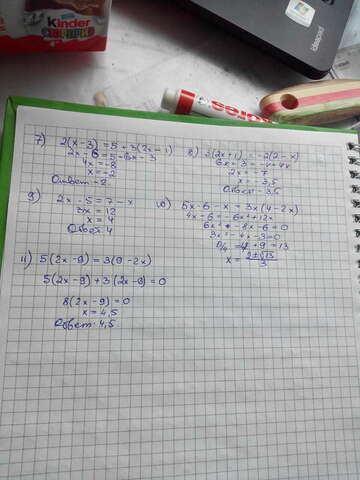 kinder
ideapad
7) 2(x-3) = 5 - 3(2x-1)
4x = -8
x = -2
Ответ -2
8) 3(2x+1) = -2(2-x)
2x = -7
x = -3,5
Ответ -3,5
9) 2x - 5 = 7 - x
3x = 12
x = 4
Ответ 4
10) 5x - 6 - x = 3x(4-2x)
4x - 6 = -6x² + 12x
6x² - 8x - 6 = 0
3x² - 4x - 3 = 0
D/4 = 4 + 9 = 13
x = 2±√13 / 3
11) 5(2x-9) = 3(9-2x)
5(2x-9) + 3(2x-9) = 0
8(2x-9) = 0
x = 4,5
Ответ 4,5